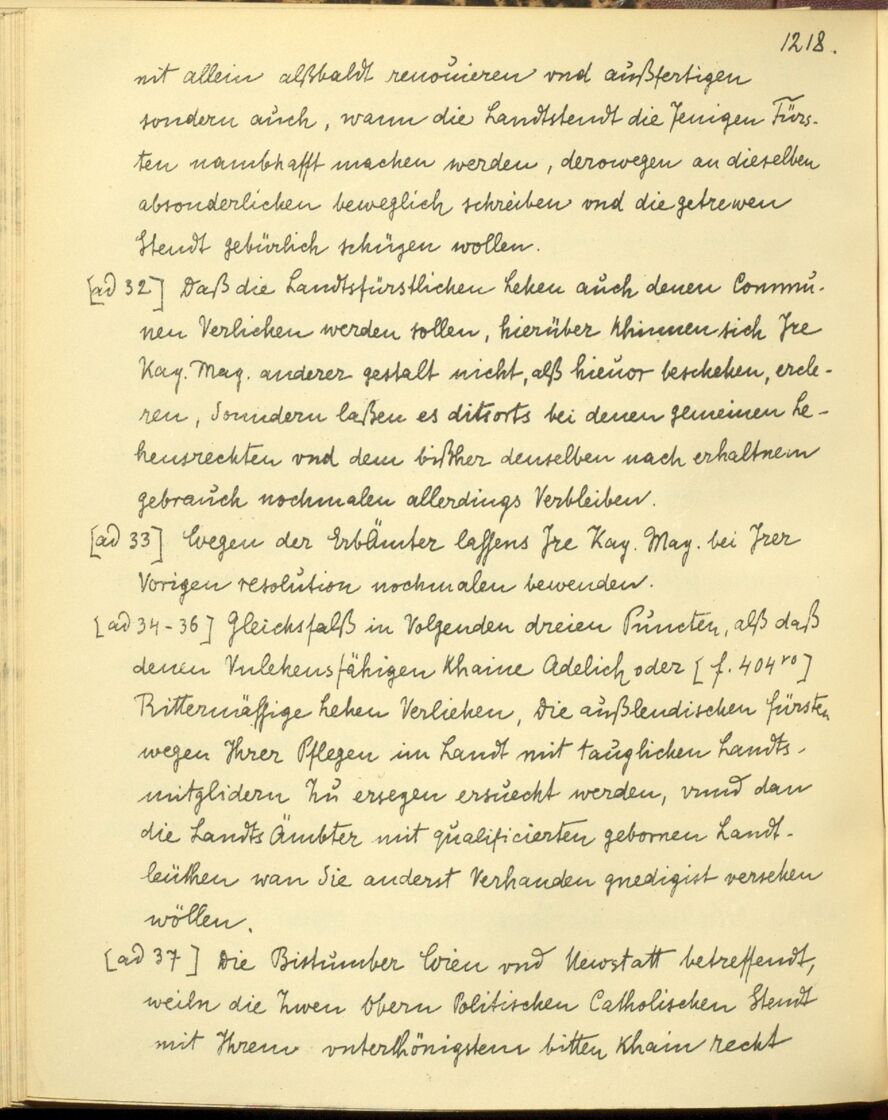 1218.
nit allein alßbaldt renouieren vnd außfertigen
sondern auch, wann die Landtstendt die Jenigen Fürs-
ten nambhafft machen werden, derowegen an dieselben
absonderlichen beweglich schreiben vnd die getrewen
Stendt gebürlich schüzen wollen.
[ad 32] Daß die Landtsfürstlichen Lehen auch denen Commu-
nen Verlichen werden sollen, hierüber khinnen sich Ire
Kay. May. anderer gestalt nicht, alß hieuor beschehen, ercle-
ren, Sonndern laßen es ditsorts bei denen gemeinen Le-
hensrechten vnd dem bißher denselben nach erhaltnem
gebrauch nochmalen allerdings Verbleiben.
[ad 33] Wegen der ErbÄmter lassens Ire Kay. May. bei Irer
Vorigen resolution nochmalen bewenden.
[ad 34-36] Gleichsfalß in Volgenden dreien Puncten, alß daß
denen Vnlehensfähigen Khaine Adelich oder [f. 404ro]
Rittermässige Lehen Verliehen, Die außlendischen fürsten
wegen Ihrer Pflegen im Landt mit tauglichen Landts-
mitglidern Zu ersezen ersuecht werden, vnnd dan
die Landts Ämbter mit qualificierten gebornen Landt-
leüthen wan Sie anderst Verhanden gnedigist versehen
wöllen.
[ad 37] Die Bistumber Wien vnd Newstatt betreffendt,
weiln die Zwen Obern Politischen Catholischen Stendt
mit Ihrem vnterthönigstem bitten Khain recht